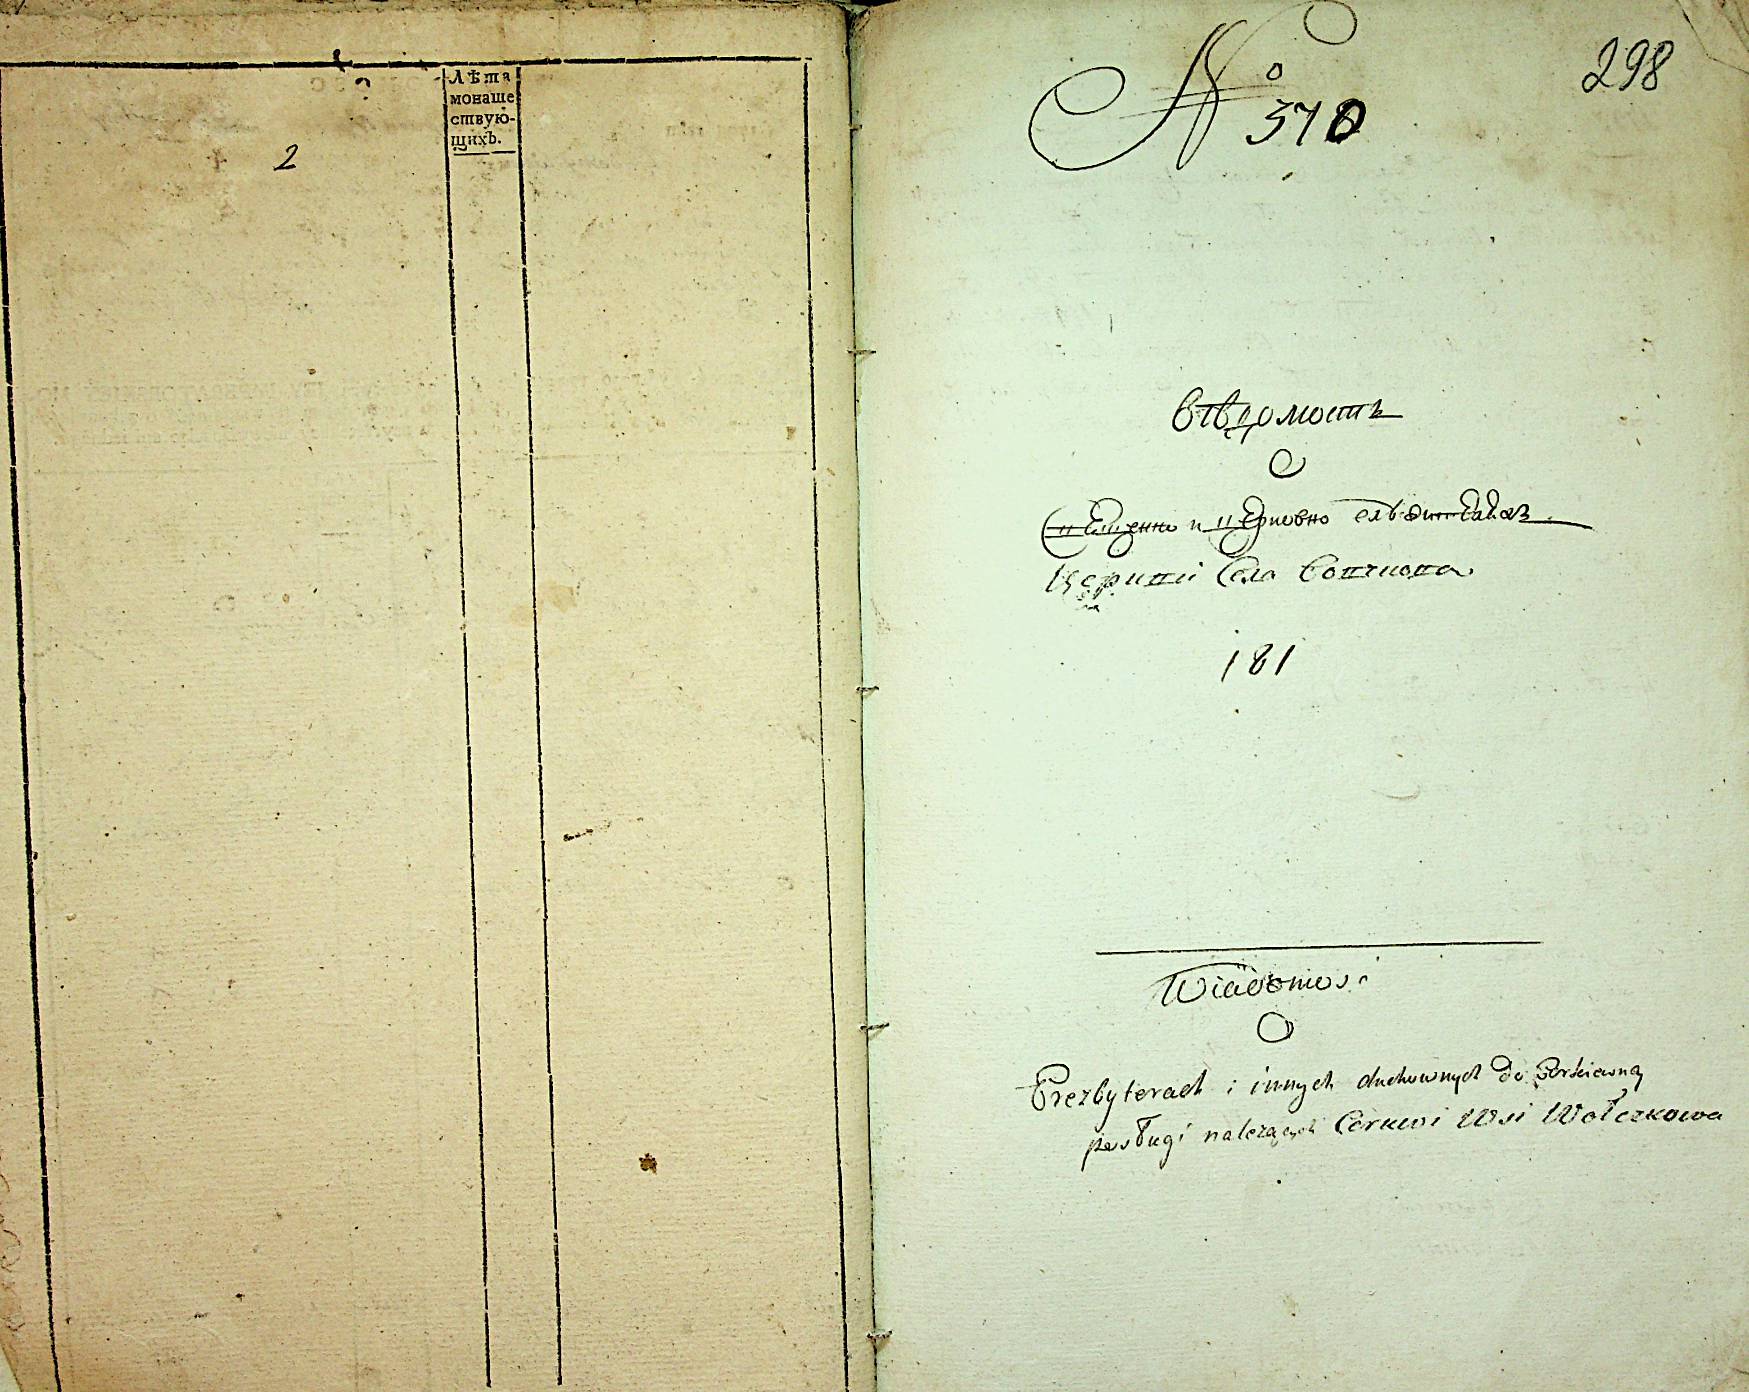 2
Лѣта
монаше
ствую-
щихъ.
298
№ 370
Вѣдомость
О
Священно и Церковно служителяхъ
Церкви Села Волчкова
181
Wiadomość
O
Prezbyterach i innych duchownych do Cerkiewney
posługi należących Cerkwi Wsi Wołczkowa